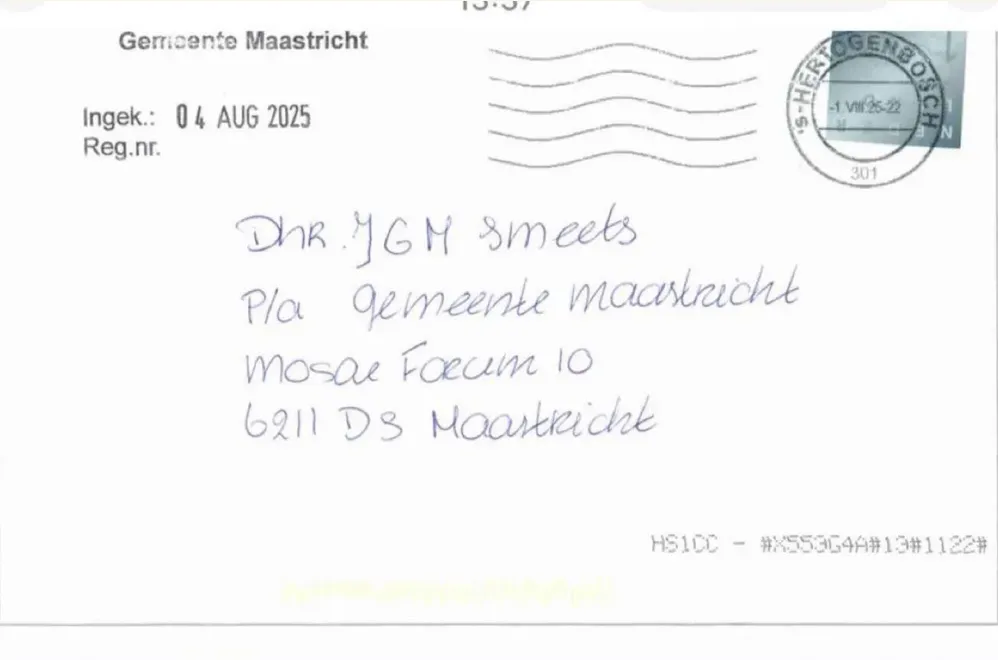 Gemeente Maastricht
Ingek.: 04 AUG 2025
Reg.nr.
's-HERTOGENBOSCH
-1 VIII 25-22
301
NED
Dhr. JGM Smeets
P/a gemeente maastricht
Mosae Forum 10
6211 DS Maastricht
HS1CC - #X553G4A#13#1122#